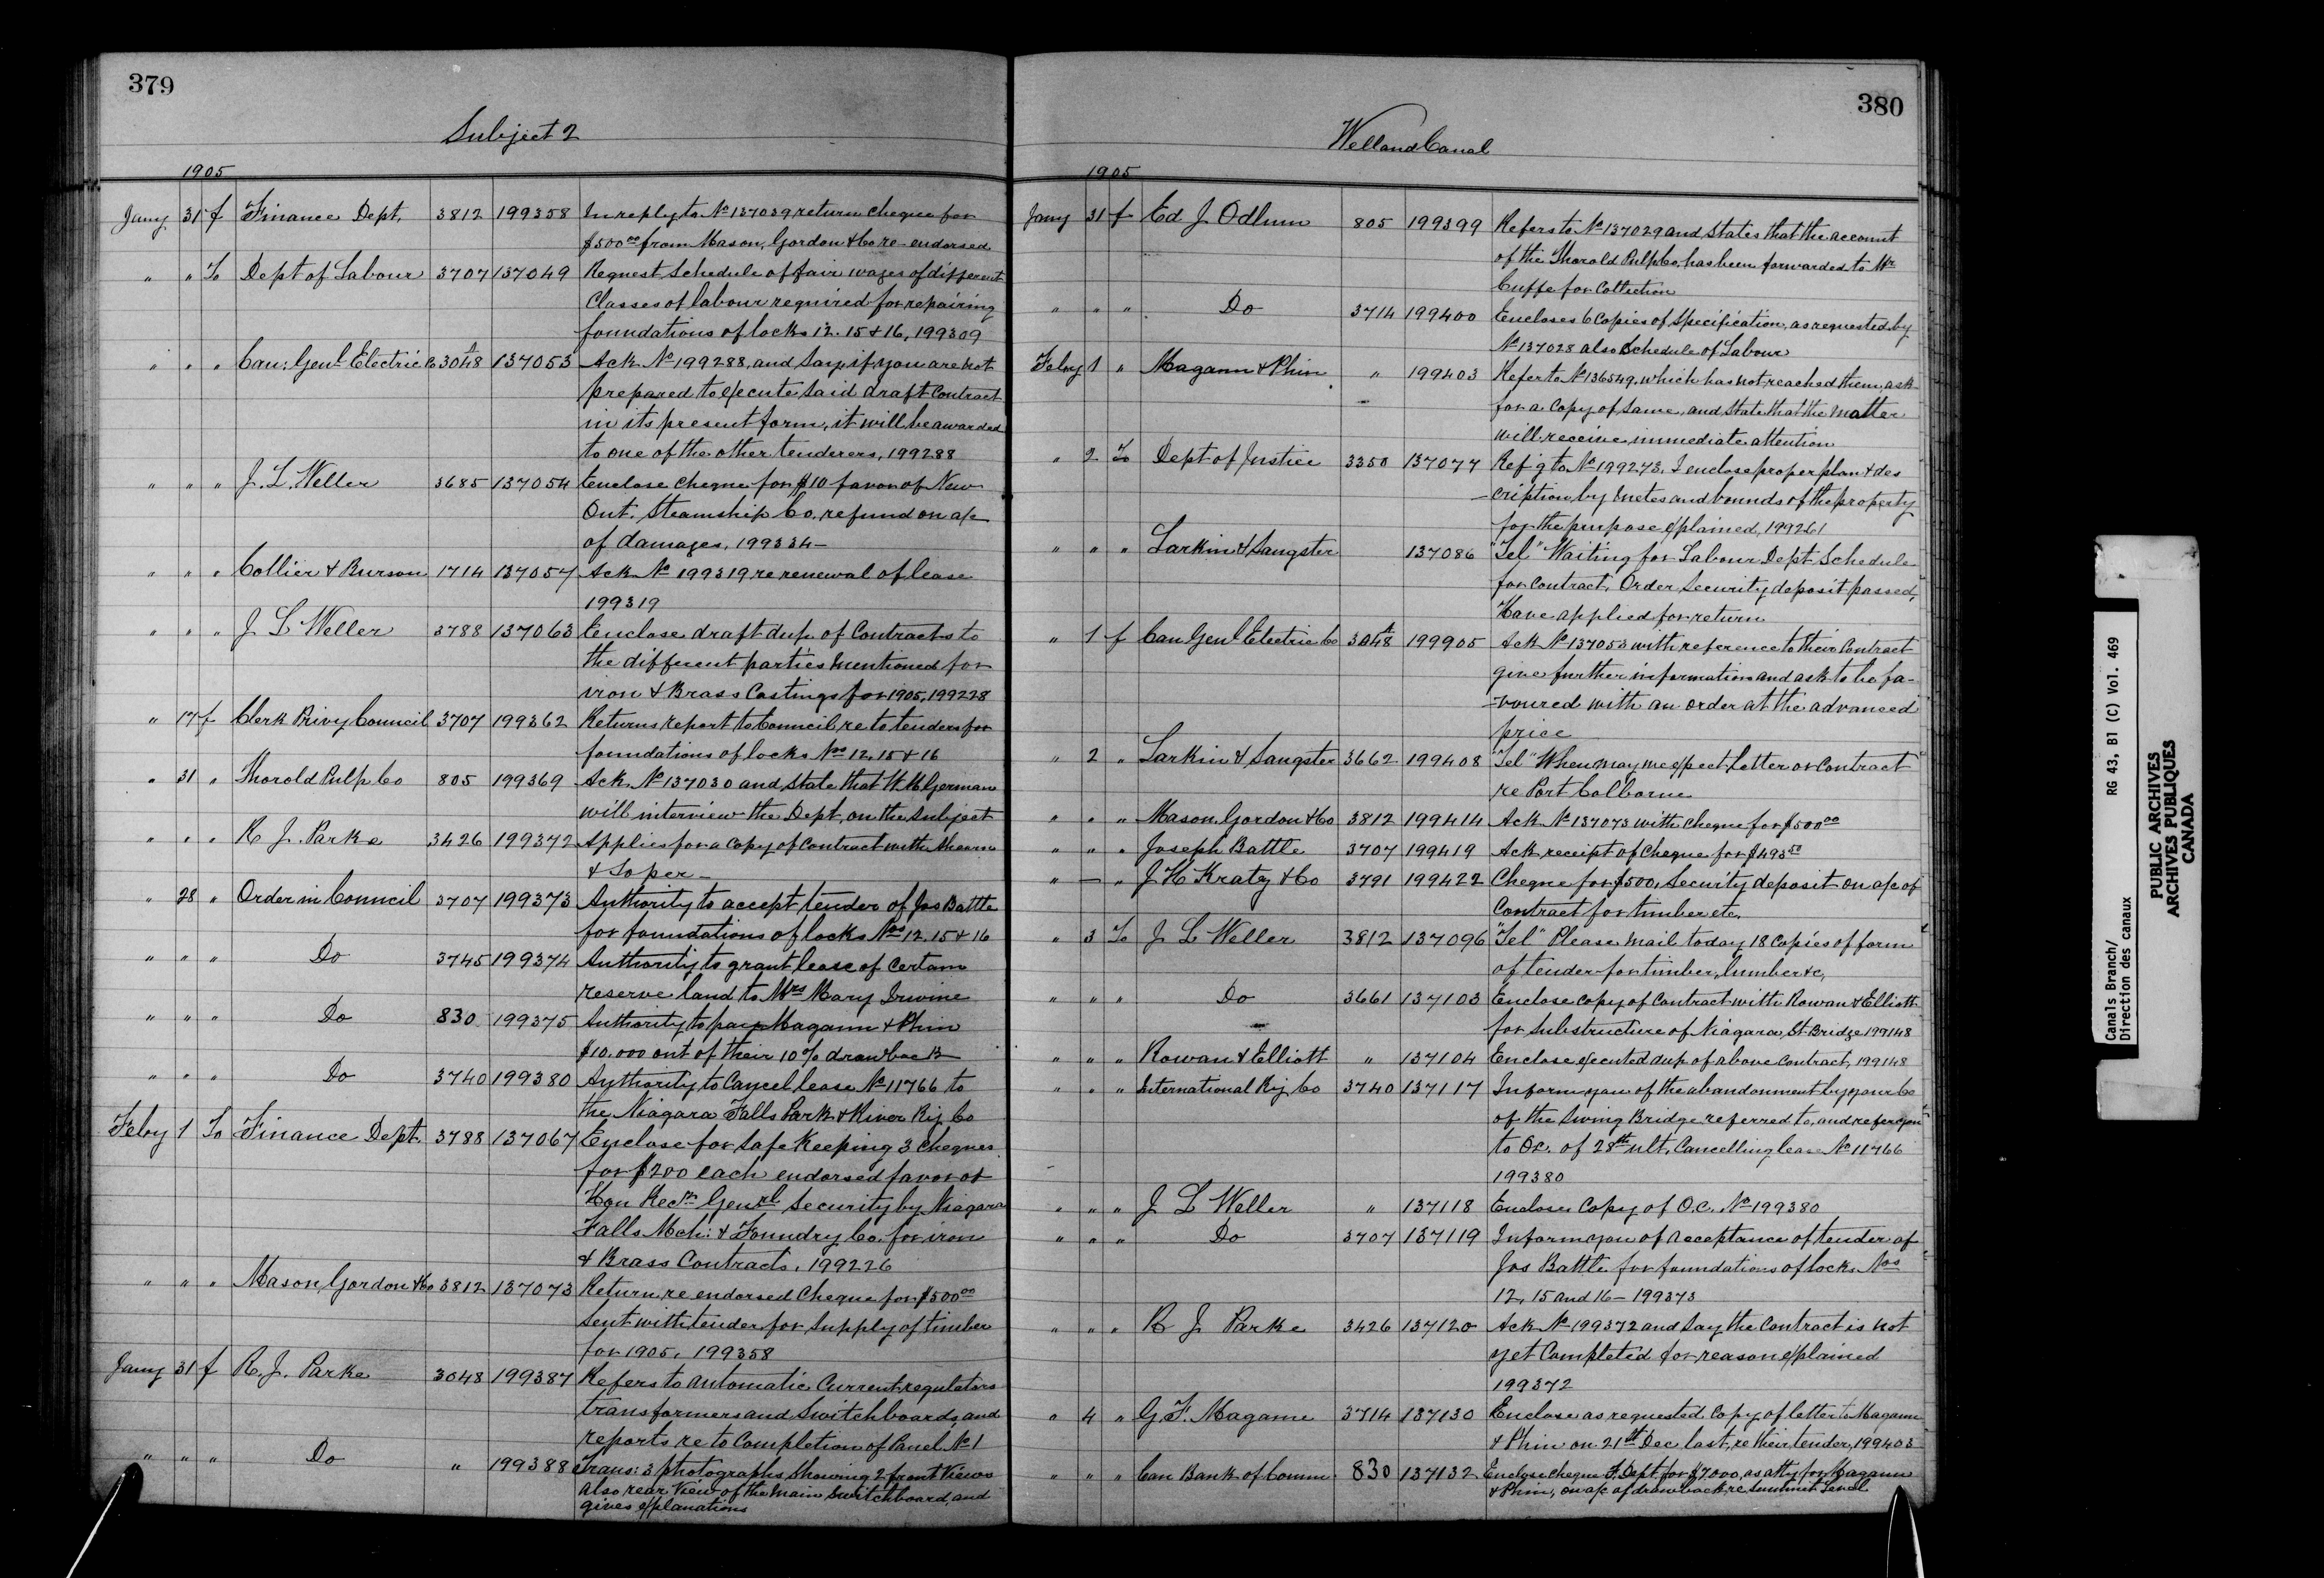 379
Subject 2
1905
Jany 31 f Finance Dept. 3812 199358 In reply to No 137039 return cheque for
$500.00 from Mason, Gordon & Co re-endorsed
" " To Dept of Labour 3707 137049 Request Schedule of fair wages of different
Classes of labour required for repairing
foundations of locks 12. 15 & 16, 199309
" " " Can: Genl Electric Co 3048 137053 Ack No 199288, and Say if you are not
prepared to execute said draft Contract
in its present form, it will be awarded
to one of the other tenderers, 199288
" " " J. L. Weller 3685 137054 Enclose cheque for $10 favor of New
Ont. Steamship Co. refund on a/c
of damages, 199334 –
" " " Collier & Burson 1714 137057 Ack No 199319 re renewal of lease
199319
" " " J L Weller 3788 137063 Enclose draft dup. of Contracts to
the different parties mentioned for
iron & Brass Castings for 1905, 199228
" 17 f Clerk Privy Council 3707 199362 Returns report to Council re to tenders for
foundations of locks Nos 12, 15 & 16
" 31 " Thorold Pulp Co 805 199369 Ack. No 137030 and state that W. M. German
will interview the Dept. on the subject
" " " R J. Parke 3426 199372 Applies for a Copy of Contract with Ahearn
& Soper –
" 28 " Order in Council 3707 199373 Authority to accept tender of Jos Battle
for foundations of locks Nos 12, 15 & 16
" " " Do 3745 199374 Authority to grant lease of Certain
reserve land to Mrs Mary Irvine
" " " Do 830 199375 Authority to pay Magann & Phin
$10.000 out of their 10% drawback
" " " Do 3740 199380 Authority to Cancel lease No 11766 to
the Niagara Falls Park & River Ry Co
Feby 1 To Finance Dept. 3788 137067 Enclose for Safe Keeping 3 cheques
for $200 each endorsed favor of
Hon Recr Genrl Security by Niagara
Falls Mch: & Foundry Co. for iron
& Brass Contracts. 199226
" " " Mason, Gordon & Co 3812 137073 Return re endorsed Cheque for $500.00
Sent with tender for Supply of timber
for 1905. 199358
Jany 31 f R. J. Parke 3048 199387 Refers to automatic Current regulators
transformers and Switchboards and
reports re to Completion of Panel No 1
" " " Do " 199388 Trans: 3 photographs Showing 2 front Views
also rear View of the Main Switchboard, and
gives explanations
380
Welland Canal
1905
Jany 31 f Ed J Odlum 805 199399 Refers to No 137029 and States that the account
of the Thorold Pulp Co. has been forwarded to Mr
Cuffe for Collection
" " " Do 3714 199400 Encloses 6 Copies of Specification, as requested by
No 137028 also Schedule of Labour
Feby 1 " Magann & Phin " 199403 Refer to No 136549, which has not reached them, ask
for a Copy of Same, and State that the matter
will receive immediate attention
" 2 To Dept of Justice 3350 137077 Ref'g to No 199273, I enclose proper plan & des
-cription by metes and bounds of the property
for the purpose explained, 199261
" " " Larkin & Sangster 137086 "Tel" Waiting for Labour Dept Schedule
for Contract. Order Security deposit passed,
Have applied for return
" 1 f Can Genl Electric Co 3048 199905 Ack No 137053 with reference to their Contract
give further information and ask to be fa-
-voured with an order at the advanced
price
" 2 " Larkin & Sangster 3662 199408 "Tel" When may we expect letter or Contract
re Port Colborne
" " " Mason, Gordon & Co 3812 199414 Ack No 137073 with Cheque for $500.00
" " " Joseph Battle 3707 199419 Ack receipt of Cheque for $493.50
" – " J H Kratz & Co 3791 199422 Cheque for $500, Security deposit on a/c of
Contract for timber etc.
" 3 To J L Weller 3812 137096 "Tel" Please mail today 18 Copies of form
of tender for timber, lumber &c,
" " " Do 3661 137103 Enclose Copy of Contract with Rowan & Elliott
for Substructure of Niagara St Bridge 199148
" " " Rowan & Elliott " 137104 Enclose executed dup. of above Contract, 199148
" " " International Ry Co 3740 137117 Inform you of the abandonment by your Co
of the Swing Bridge referred to, and refer you
to O.C. of 28th ult. Cancelling lease No 11766
199380
" " " J L Weller " 137118 Enclose Copy of O.C. No 199380
" " " Do 3707 137119 Inform you of acceptance of tender of
Jos Battle for foundations of locks Nos
12, 15 and 16 – 199373
" " " R J Parke 3426 137120 Ack No 199372 and Say the Contract is not
yet Completed for reason explained
199372
" 4 " G F. Magann 3714 137130 Enclose as requested Copy of letter to Magann
& Phin on 21st Dec last, re their tender, 199403
" " " Can Bank of Comm. 830 137132 Enclose cheque F. Dept for $7.000, as atty for Magann
& Phin, on a/c of drawback re Summit Level
Canals Branch/ RG 43, B1 (C) Vol. 469
Direction des canaux
PUBLIC ARCHIVES
ARCHIVES PUBLIQUES
CANADA